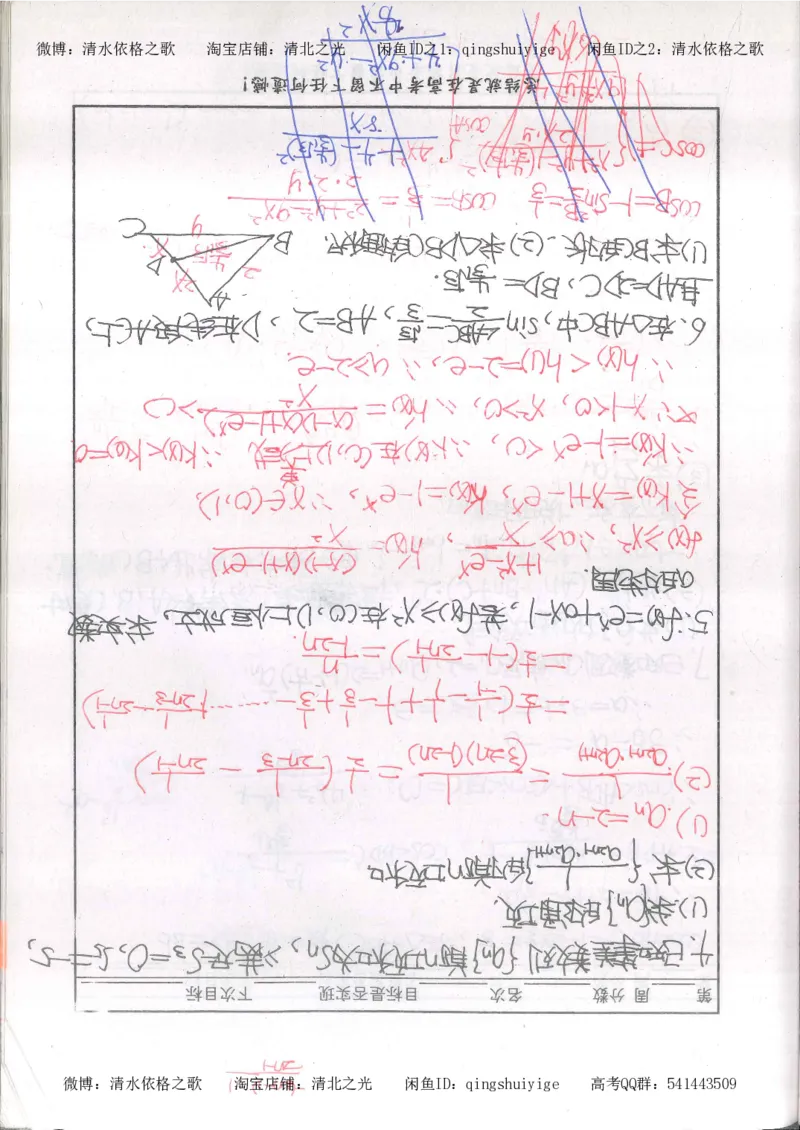 微博：清水依格之歌 淘宝店铺：清北之光 闲鱼ID之1：qingshuiyige 闲鱼ID之2：清水依格之歌
第 周 分数 名次 目标是否实现 下次目标
4 已知等差数列{an}前n项和为Sn，满足S3=0, S5=-5,
(1)求{an}的通项.
(2)求{1/(a2n-1·a2n+1)}的前n项和.
(1) an=2-n
(2). 1/(a2n-1·a2n+1) = 1/((3-2n)(1-2n)) = 1/2(1/(2n-3) - 1/(2n-1))
=1/2(1/-1 - 1/1 + 1/1 - 1/3 + 1/3 - …… + 1/(2n-3) - 1/(2n-1))
=1/2(-1-1/(2n-1))=n/(1-2n).
5. f(x)=e^x+ax-1, 若f(x)≥x²在(0,1)上恒成立, 求实数
a的范围.
f(x)≥x², ∴a≥(1+x²-e^x)/x, h'(x)=((x-1)(x+1-e^x))/x²
令k(x)=x+1-e^x, k'(x)=1-e^x, ∵x∈(0,1),
∴k'(x)=1-e^x<0, ∴k(x)在(0,1)上是减 ∴k(x)<k(0)=0
∵x-1<0, x²>0, ∴h'(x)=((x-1)(x+1-e^x))/x²>0
∴h(x)<h(1)=2-e, ∴a≥2-e.
6. 在△ABC中, sin∠ABC/2=√3/3, AB=2, D在线段AC上,
且AD=2DC, BD=4√3/3.
(1)求BC的长. (2)求△DBC的面积.
A
B
C
D
2
2x
x
y
4√3/3
2·2·y
总结就是在高考中不留下任何遗憾！
2n-1
微博：清水依格之歌 淘宝店铺：清北之光 闲鱼ID：qingshuiyige 高考QQ群：541443509